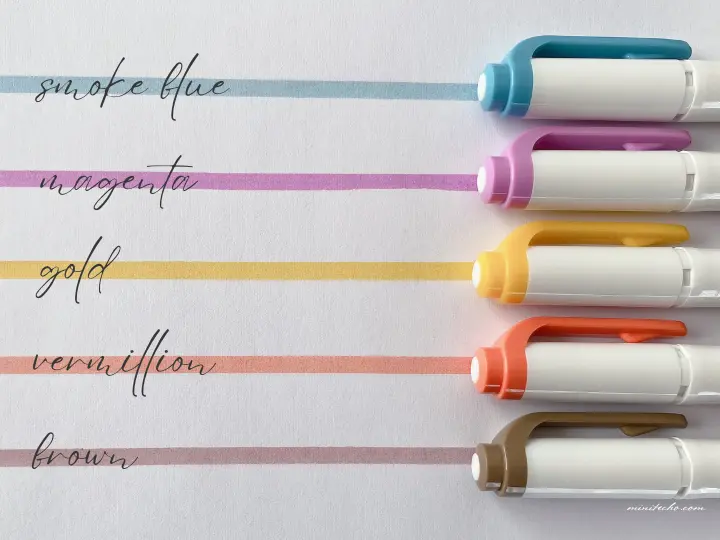 smoke blue
magenta
gold
vermillion
brown
minitecho.com